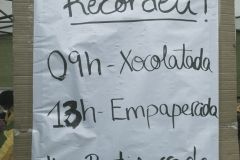 Recordeu!
09h - Xocolatada
13h - Empaperada